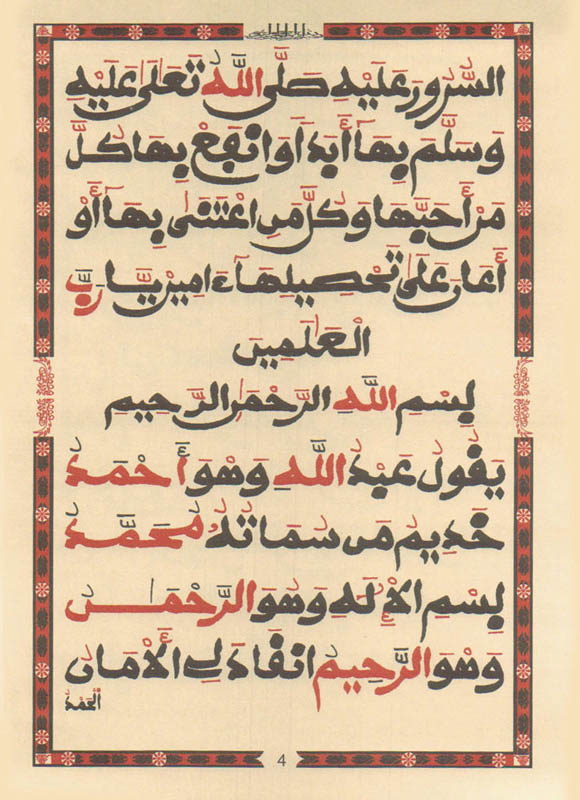 السُّرُورَ عَلَيْهِ صَلَّى اللَّهُ تَعَلَى عَلَيْهِ
وَسَلَّمَ بِهَا أَبَدًا وَانْفَعْ بِهَا كُلَّ
مَنْ أَحَبَّهَا وَكُلَّ مَنِ اعْتَنَى بِهَا أَوْ
أَعَانَ عَلَى تَحْصِيلِهَا ءَامِينَ يَا رَبَّ
الْعَلَمِينَ
بِسْمِ اللَّهِ الرَّحْمَنِ الرَّحِيمِ
يَقُولُ عَبْدُ اللَّهِ وَهْوَ أَحْمَدُ
خَدِيمُ مَنْ سَمَاتُهُ مُحَمَّدُ
بِسْمِ الْإِلَهِ وَهْوَ الرَّحْمَنُ
وَهْوَ الرَّحِيمُ انْقَادَ لِي الْأَمَانُ
الْحَمْدُ
4